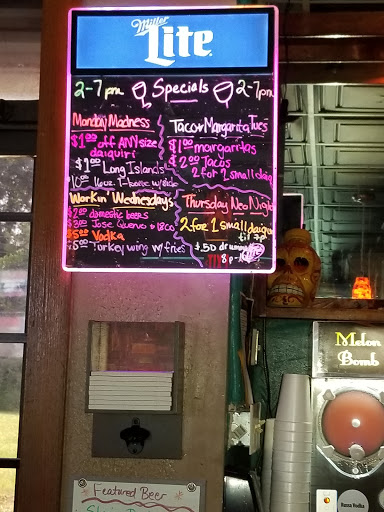 Miller
Lite
2-7pm Specials 2-7pm
Monday Madness
$1.00 off ANY size
daiquiri
$1.00 Long Islands
10.00 16oz. T-bone w/side
Taco & Margarita Tues
$1.00 margarritas
$2.00 Tacos
2 for 1 small daiq
Workin' Wednesdays
$2.00 domestic beers
$3.00 Jose Quervo & 1800
$5.00 Vodka
$5.00 Turkey wing w/ fries
Thursday Neo Night
2 for 1 small daiquiri
til 7p
$.50 drumm
8p-
Melon
Bomb
Featured Beer
Russa Vodka